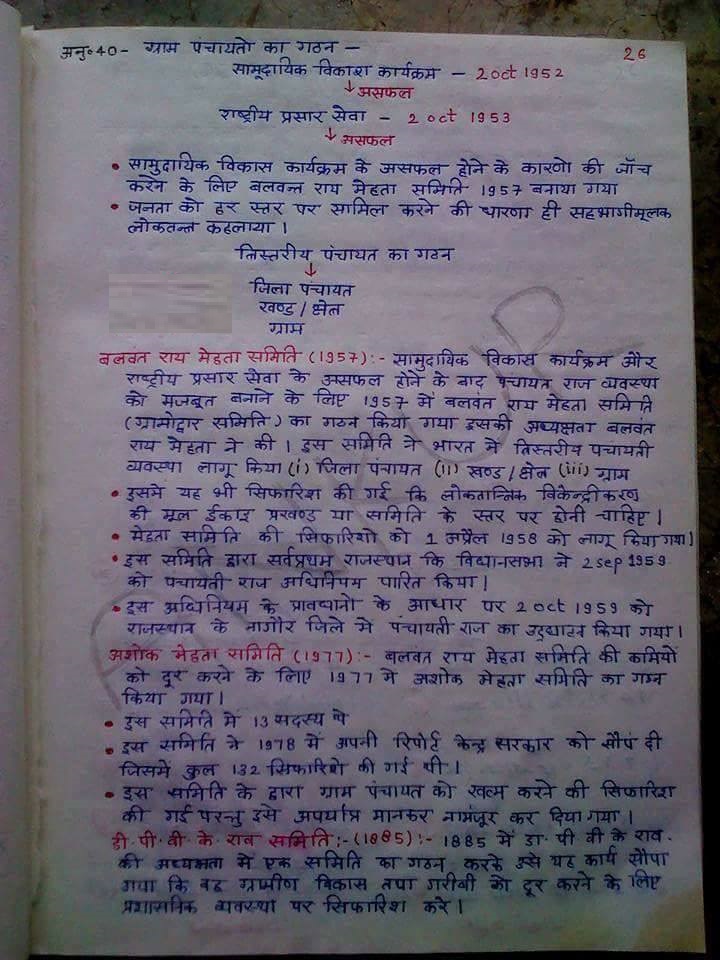 अनु॰40- ग्राम पंचायतो का गठन - 26
सामूदायिक विकाश कार्यक्रम - 2 oct 1952
↓असफल
राष्ट्रीय प्रसार सेवा - 2 oct 1953
↓असफल
• सामुदायिक विकास कार्यक्रम के असफल होने के कारणो की जाँच
करने के लिए बलवन्त राय मेहता समिति 1957 बनाया गया
• जनता को हर स्तर पर सामिल करने की धारणा ही सहभागीमूलक
लोकतन्त कहलाया ।
तिस्तरीय पंचायत का गठन
↓
जिला पंचायत
खण्ड / क्षेत
ग्राम
बलवंत राय मेहता समिति (1957):- सामुदायिक विकास कार्यक्रम और
राष्ट्रीय प्रसार सेवा के असफल होने के बाद पंचायत राज व्यवस्था
को मजबूत बनाने के लिए 1957 में बलवंत राय मेहता समिति
(ग्रामोद्वार समिति) का गठन किया गया इसकी अध्यक्षता बलवंत
राय मेहता ने की । इस समिति ने भारत मे तिस्तरीय पंचायती
व्यवस्था लागू किया (i) जिला पंचायत (ii) खण्ड / क्षेत (iii) ग्राम
• इसमे यह भी सिफारिश की गई कि लोकतान्तिक विकेन्द्रीकरण
की मूल ईकाइ प्रखण्ड या समिति के स्तर पर होनी चाहिए ।
• मेहता समिति की सिफारिशो को 1 अप्रैल 1958 को लागू किया गया।
• इस समिति द्वारा सर्वप्रथम राजस्थान कि विधानसभा ने 2 sep 1959
को पंचायती राज अधिनियम पारित किया ।
• इस अधिनियम के प्रावधानो के आधार पर 2 oct 1959 को
राजस्थान के नागौर जिले मे पंचायती राज का उदघाटन किया गया ।
अशोक मेहता समिति (1977):- बलवंत राय मेहता समिति की कमियों
को दूर करने के लिए 1977 मे अशोक मेहता समिति का गठन
किया गया ।
• इस समिति मे 13 सदस्य थे
• इस समिति ने 1978 में अपनी रिपोर्ट केन्द्र सरकार को सौंप दी
जिसमें कुल 132 सिफारिशे की गई थी ।
• इस समिति के द्वारा ग्राम पंचायत को खत्म करने की सिफारिश
की गई परन्तु इसे अपर्याप्त मानकर नामंजूर कर दिया गया ।
डी. पी. वी. के. राव समिति:- (1885):- 1885 में डा. पी वी के राव.
की अध्यक्षता में एक समिति का गठन करके उसे यह कार्य सौपा
गया कि वह ग्रामीण विकास तथा गरीबी को दूर करने के लिए
प्रशासनिक व्यवस्था पर सिफारिश करे ।